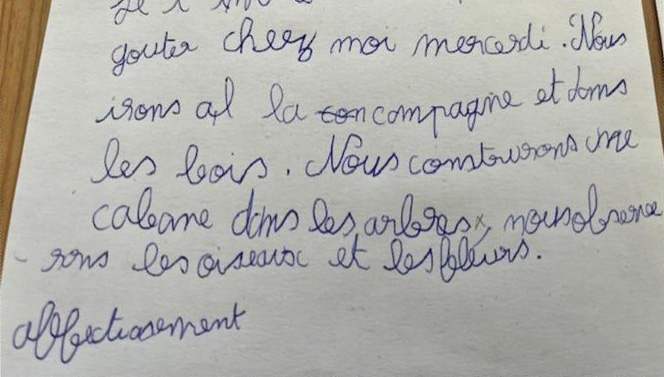 gouter chez moi mercredi. Nous
irons à la campagne et dans
les bois. Nous construirons une
cabane dans les arbres, nous observe
rons les oiseaux et les fleurs.
affectiosement